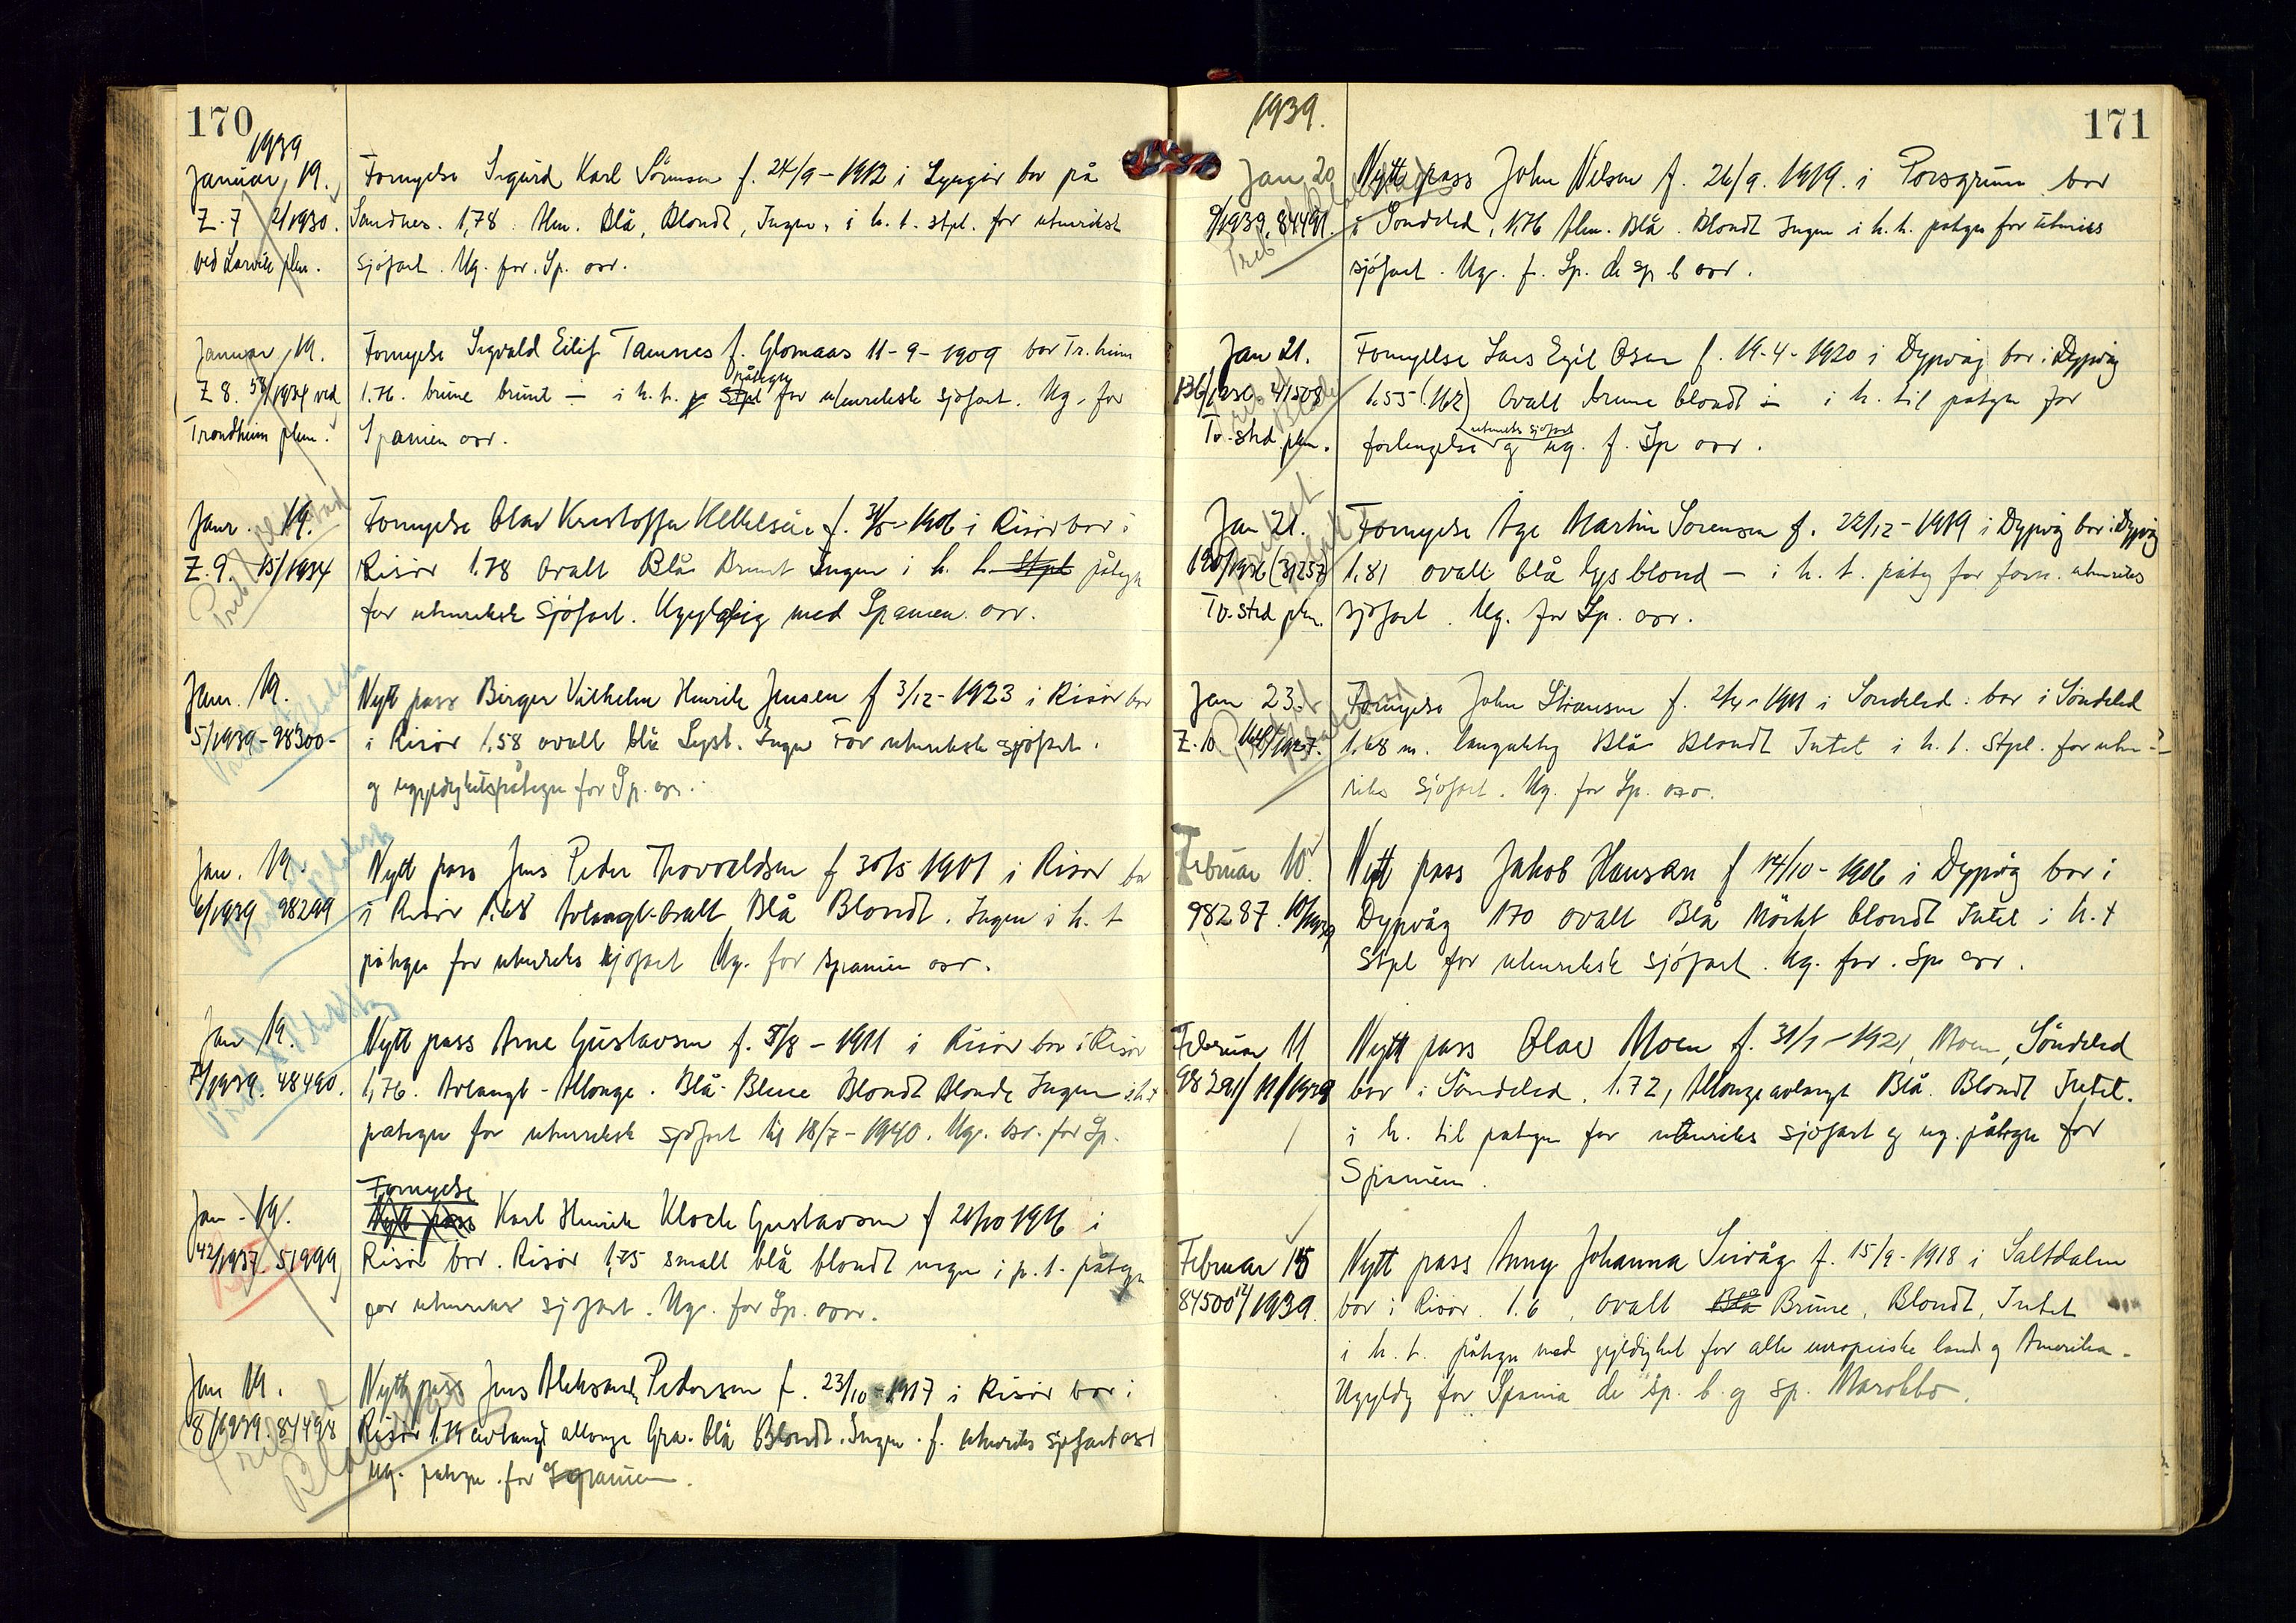 170
1939
Januar 19.
Z. 7 2/1930.
ved Larvik pkm.
Fornyelse Sigurd Karl Sörensen f. 24/9 - 1912 i Lyngör bor på
Sandnes. 1,78. Alm. Blå, Blondt, Ingen, i h. t. stpl. for utenriksk
sjöfart. Ug. for. Sp. osv.
Januar 19.
Z 8. 58/1934 ved
Trondheim pkm.
Fornyelse Sigvald Eilif Tamnes f. Glomaas 11-9-1909 bor Tr.heim
påtegn
1.76. brune brunt - i h. t. Stpl for utenriksk sjöfart. Ug. for
Spanien osv.
Janr. 19.
Z. 9. 15/1934
Fornyelse Olav Kristoffer f. 1906 i Risör bor i
Risör 1.78 Ovalt Blå Brunt Ingen i h. t. Stpl påtegn
for utenriksk sjöfart. Ugyldig med Spanien osv.
Jan. 19.
5/1939 - 98300 -
Nytt pass Birger Vilhelm Henrik Jensen f 3/12 - 1923 i Risör bor
i Risör 1,58 ovalt blå Lyst. Ingen For utenriksk sjöfart.
og ugyldighetspåtegn for Sp. osv.
Jan. 19.
6/1939 98299
Nytt pass Jens Peder Thorvaldsen f 30/5 1901 i Risör bor
i Risör 1.68 Avlangt-Ovalt Blå Blondt. Ingen i h. t
påtegn for utenriks sjöfart Ug. for Spanien osv.
Jan 19.
7/1939. 48490.
Nytt pass Arne Gustavsen f. 5/8 - 1911 i Risör bor i Risör
1,76. Avlangt - Allonge. Blå - Bleue Blondt Blonde Ingen i h t
påtegn for utenriksk sjöfart til 18/7 - 1940. Ug. osv. for Sp.
Fornyelse
Jan - 19.
42/1937. 51999
Nytt pass Karl Henrik Kloch Gustavsen f 20/10 1916 i
Risör bor. Risör 1,75 smalt blå blondt ingen i h. t. påtegn
for utenriks sjöfart. Ug. for Sp. osv.
Jan 19.
8/1939. 84498
Nytt pass Jens Aleksander Pedersen f. 23/10 - 1917 i Risör bor i
Risör 1.74 avlangt allonge Grå-blå Blondt. Ingen. f. utenriks sjöfart osv
Ug. påtegn. for Spanien.
1939.
171
Jan 20
9/1939. 84491.
Nytt pass John Nilsen f. 26/9. 1919. i Porsgrunn bor
i Söndeled, 1,76 Alm. Blå. Blondt Ingen i h. t. påtegn for utenriks
sjöfart. Ug. f. Sp. de sp b osv.
Jan 21.
41508
Tv.strd pkm.
Fornyelse Lars Egil Olsen f. 19-4-1920 i Dypvåg bor i Dypvåg
1.55 (1.62) Ovalt brune blondt - i h. til påtegn for
utenriks sjöfart
forlengelse og ug. f. Sp osv.
Jan 21.
(31257)
Tv.strd pkm.
Fornyelse Åge Martin Sörensen f. 22/12 - 1919 i Dypvåg bor i Dypvåg
1,81 ovalt blå lys blond - i h. t. påteg for forn. utenriks
sjöfart. Ug. for Sp. osv.
Jan 23.
Z. 10
Fornyelse John f. 1911 i Söndeled. bor i Söndeled
1.68 m. langaktig Blå Blondt Intet i h. t. Stpl. for uten-
riks sjöfart. Ug. for Sp. osv.
Februar 10.
98287. 10/1939
Nytt pass Jakob Hansen f 14/10 - 1906 i Dypvåg bor i
Dypvåg 170 ovalt Blå Mörkt blondt Intet i h. t
Stpl for utenriksk sjöfart. Ug. for. Sp. osv.
Februar 11
98291/ 11/1939
Nytt pass Olav Moen f. 31/1 - 1921, Moen, Söndeled
bor i Söndeled. 1.72, Allonge avlangt Blå. Blondt Intet.
i h. til påtegn for utenriks sjöfart og ug. påtegn for
Spanien.
Februar 15
84500 12/1939.
Nytt pass Anny Johanna Seivåg f. 15/9 - 1918 i Saltdalen
bor i Risör. 1.6, ovalt Blå Brune, Blondt, Intet
i h. t. påtegn med gyldighet for alle europeiske land og Amerika -
Ugyldig for Spania de sp. b. og sp. Marokko.